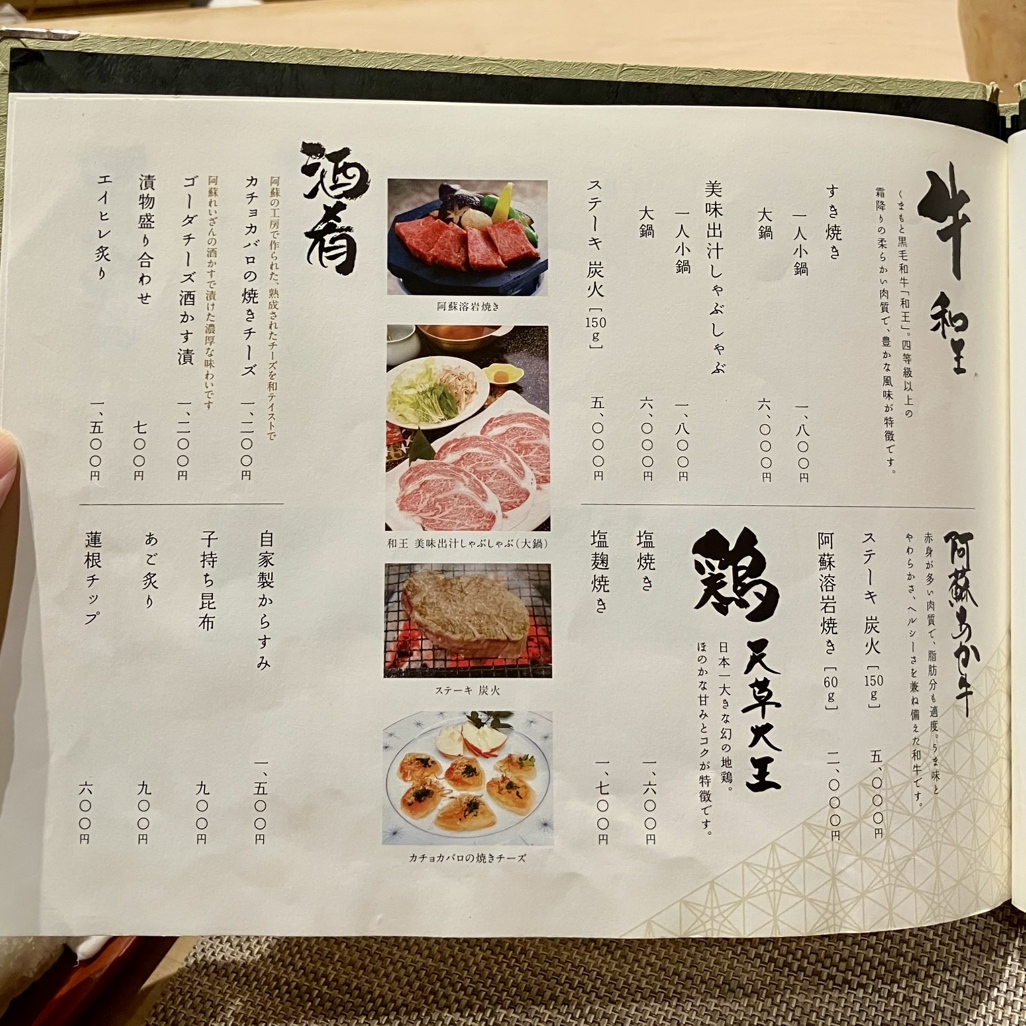 牛 和王
くまもと黒毛和牛「和王」。四等級以上の
霜降りの柔らかい肉質で、豊かな風味が特徴です。
すき焼き
一人小鍋 一、八〇〇円
大鍋 六、〇〇〇円
美味出汁しゃぶしゃぶ
一人小鍋 一、八〇〇円
大鍋 六、〇〇〇円
ステーキ 炭火[150g] 五、〇〇〇円
阿蘇あか牛
赤身が多い肉質で、脂肪分も適度。うま味と
やわらかさ、ヘルシーさを兼ね備えた和牛です。
ステーキ 炭火[150g] 五、〇〇〇円
阿蘇溶岩焼き[60g] 二、〇〇〇円
鶏 天草大王
日本一大きな幻の地鶏。
ほのかな甘みとコクが特徴です。
塩焼き 一、六〇〇円
塩麹焼き 一、七〇〇円
阿蘇溶岩焼き
和王 美味出汁しゃぶしゃぶ(大鍋)
ステーキ 炭火
カチョカバロの焼きチーズ
酒肴
阿蘇の工房で作られた、熟成されたチーズを和テイストで
カチョカバロの焼きチーズ 一、二〇〇円
阿蘇れいざんの酒かすで漬けた濃厚な味わいです
ゴーダチーズ酒かす漬 一、二〇〇円
漬物盛り合わせ 七〇〇円
エイヒレ炙り 一、五〇〇円
自家製からすみ 一、五〇〇円
子持ち昆布 九〇〇円
あご炙り 九〇〇円
蓮根チップ 六〇〇円